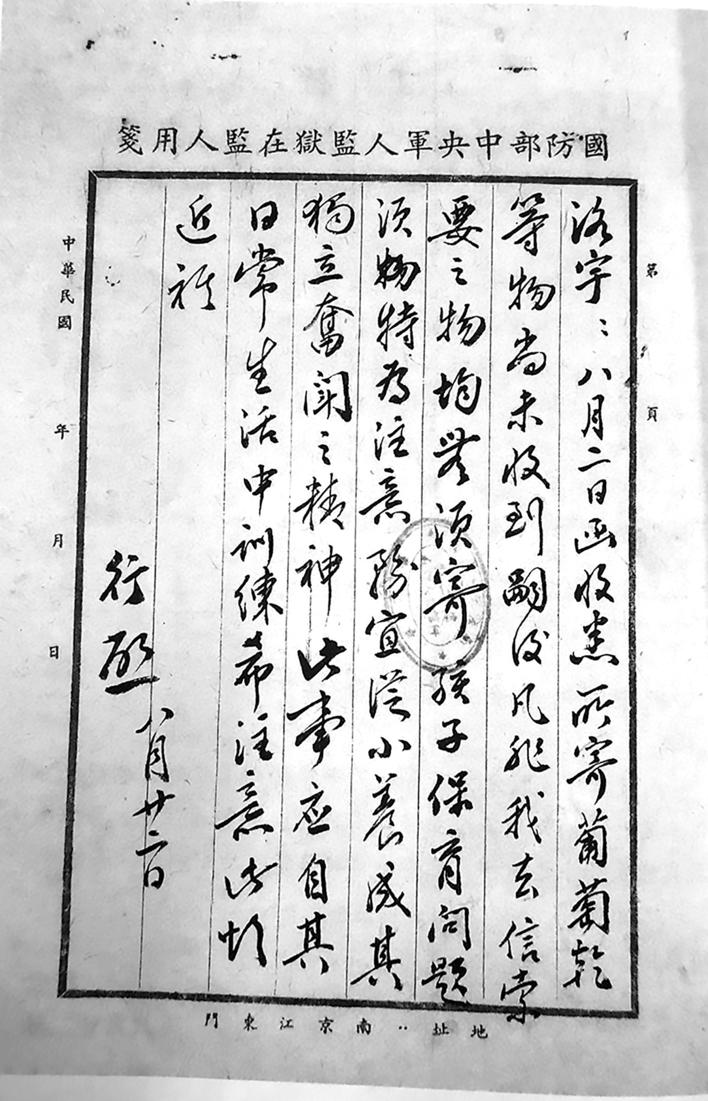 國防部中央軍人監獄在監人用箋
第 頁
洛宇：八月二日函收悉所寄葡萄乾
等物尚未收到嗣後凡非我去信索
要之物均無須寄孩子保育問題
須妳特為注意務宜從小養成其
獨立奮鬥之精神此事应自其
日常生活中訓練希注意此頌
近祺
行 八月廿二日
中華民國 年 月 日
地址：南京江東門